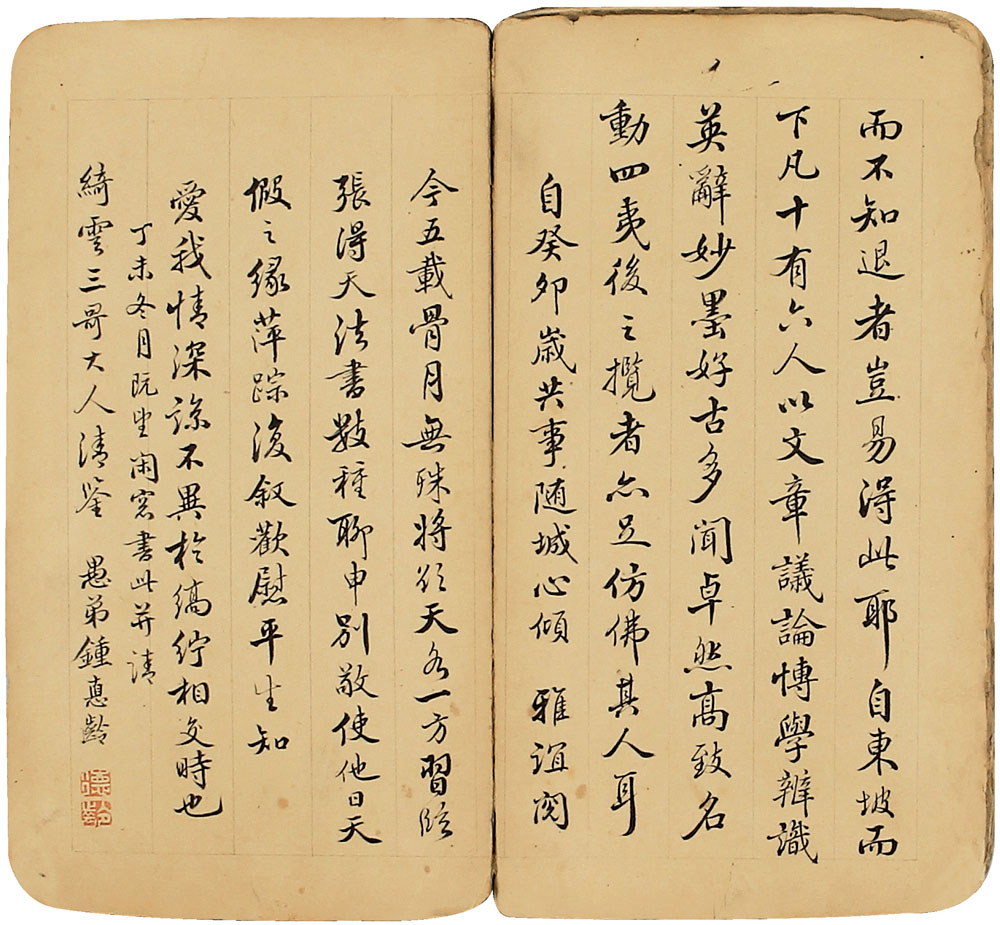 而不知退者豈易得此耶自東坡而
下凡十有六人以文章議論博學辨識
英辭妙墨好古多聞卓然高致名
動四夷後之攬者亦足仿佛其人耳
自癸卯歲共事随城心傾雅誼閱
今五載骨月無殊將欲天各一方習臨
張得天法書數種聊申別敬使他日天
假之緣萍踪復叙歡慰平生知
愛我情深諒不異於縞紵相交時也
丁未冬月既望閑窓書此并請
綺雲三哥大人清鉴 愚弟鍾惠齡
惠齡